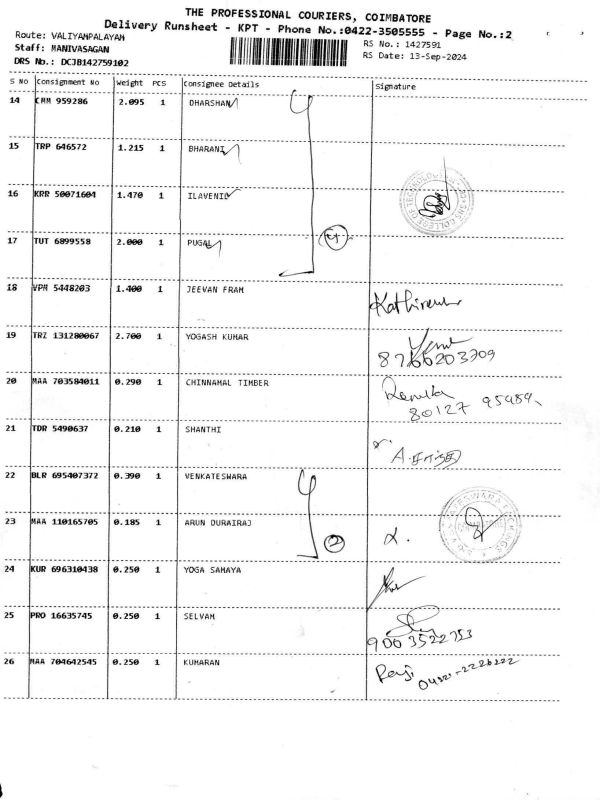 THE PROFESSIONAL COURIERS, COIMBATORE
Delivery Runsheet - KPT - Phone No.:0422-3505555 - Page No.:2
Route: VALIYAMPALAYAM
RS No.: 1427591
Staff: MANIVASAGAN
RS Date: 13-Sep-2024
DRS No.: DCJB142759102
S No Consignment No Weight PCS Consignee Details Signature
14 CMM 959286 2.095 1 DHARSHAN
15 TRP 646572 1.215 1 BHARANI
16 KRR 50071604 1.470 1 ILAVENIL
17 TUT 6899558 2.000 1 PUGAL
4
18 VPM 5448203 1.400 1 JEEVAN FRAM
19 TRZ 131280067 2.700 1 YOGASH KUMAR
8766203709
20 MAA 703584011 0.290 1 CHINNAMAL TIMBER
Renuka
80127
21 TDR 5490637 0.210 1 SHANTHI
22 BLR 695407372 0.390 1 VENKATESWARA
23 MAA 110165705 0.185 1 ARUN DURAIRAJ
2
24 KUR 696310438 0.250 1 YOGA SAMAYA
25 PRO 16635745 0.250 1 SELVAM
9003522753
26 MAA 704642545 0.250 1 KUMARAN